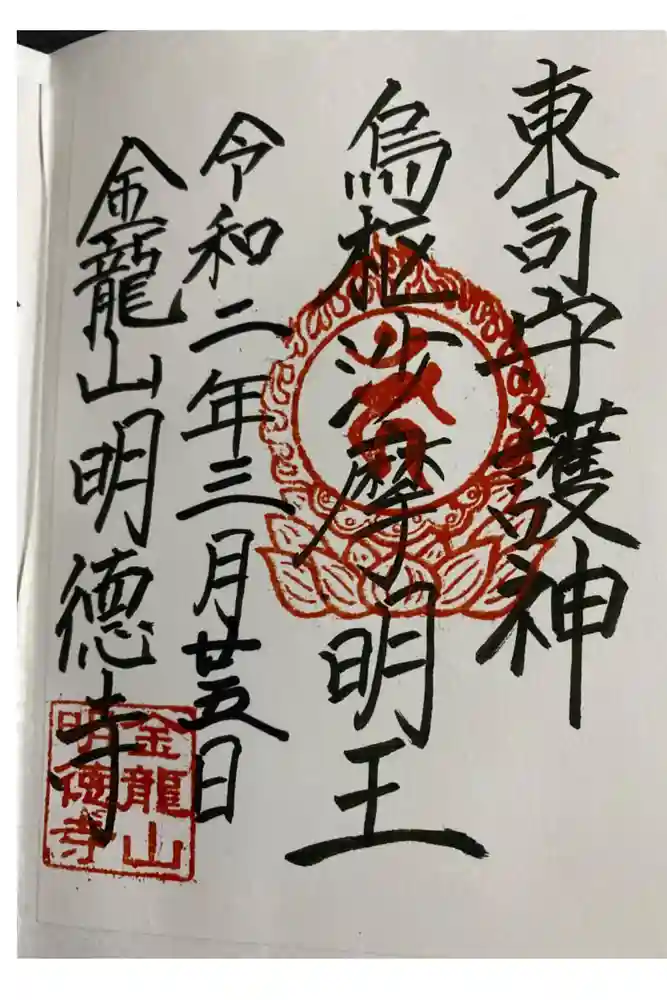 東司守護神
烏枢沙摩明王
令和二年三月廿五日
金龍山明徳寺
金龍山
明徳寺